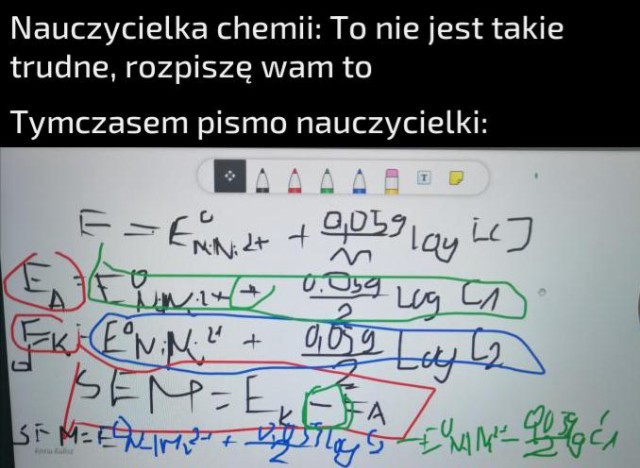 Nauczycielka chemii: To nie jest takie
trudne, rozpiszę wam to
Tymczasem pismo nauczycielki:
T
E = E⁰ Ni|Ni 2+ + 0,059/n log [c]
E_A = E⁰ Ni|Ni 2+ + 0.059/2 Log C1
E_K = E⁰ Ni|Ni 2+ + 0,059/2 Log C2
SEM = E_K - E_A
SEM = E⁰